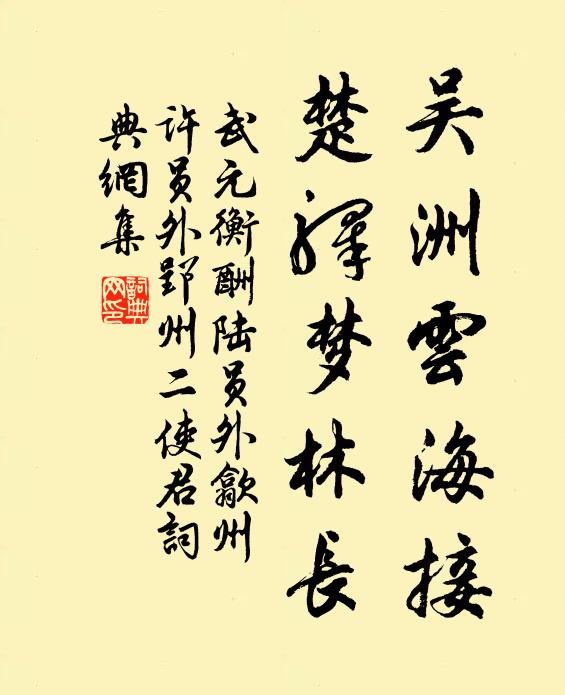 吴洲雲海接
楚驛梦林長
武元衡酬陆员外歙州
许员外郢州二使君詞
典網集
詞典网印